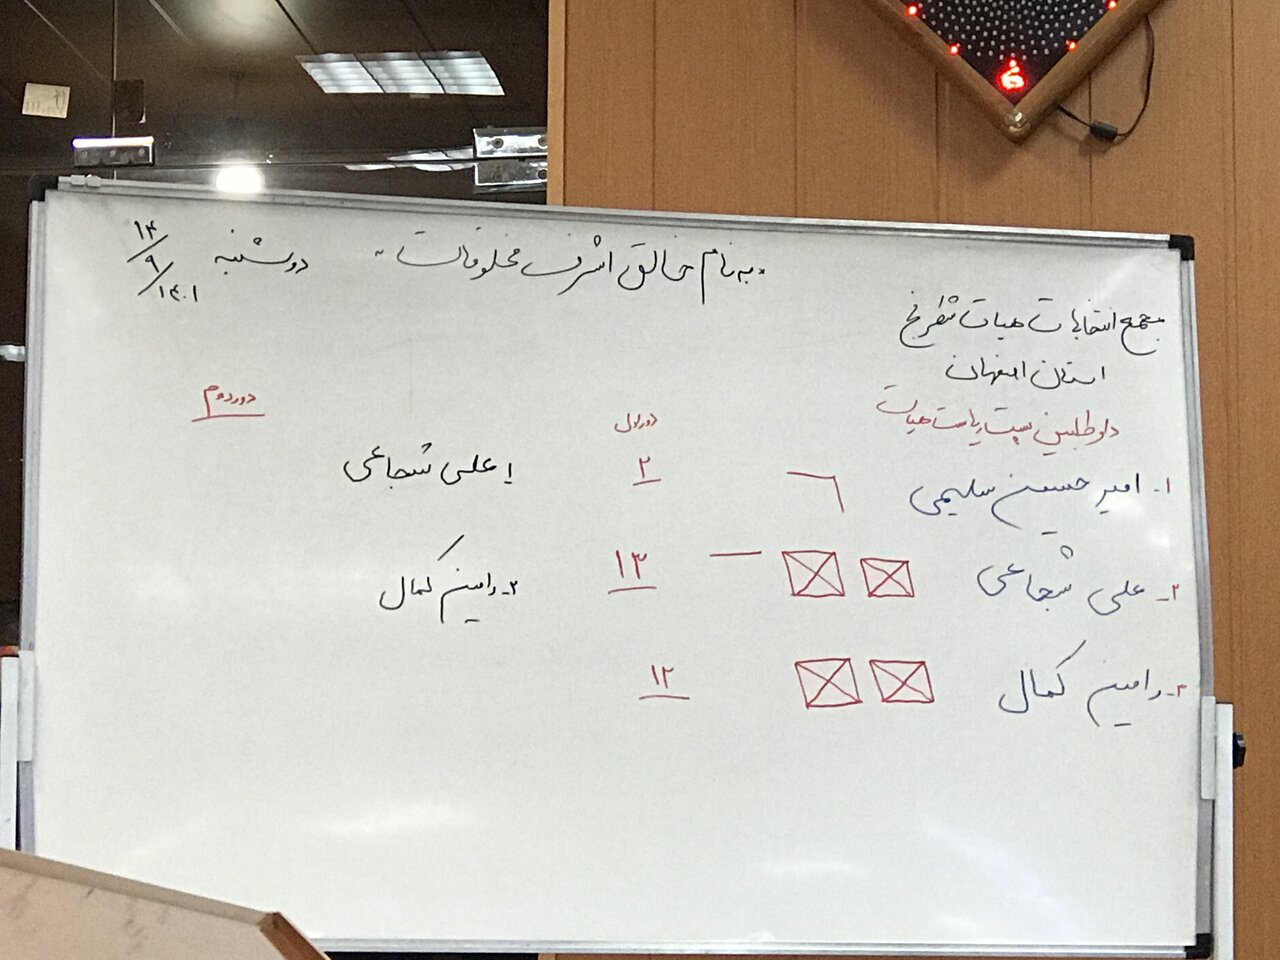 «به نام خالق اشرف مخلوقات» دوشنبه ۱۴/۹/۱۴۰۱
مجمع انتخابات هیات شطرنج
استان اصفهان
داوطلبین پست ریاست هیات
دور اول
دور دوم
۱- امیرحسین سلیمی ۲
۱- علی شجاعی
۲- علی شجاعی ۱۳
۲- رامین کمال
۳- رامین کمال ۱۲